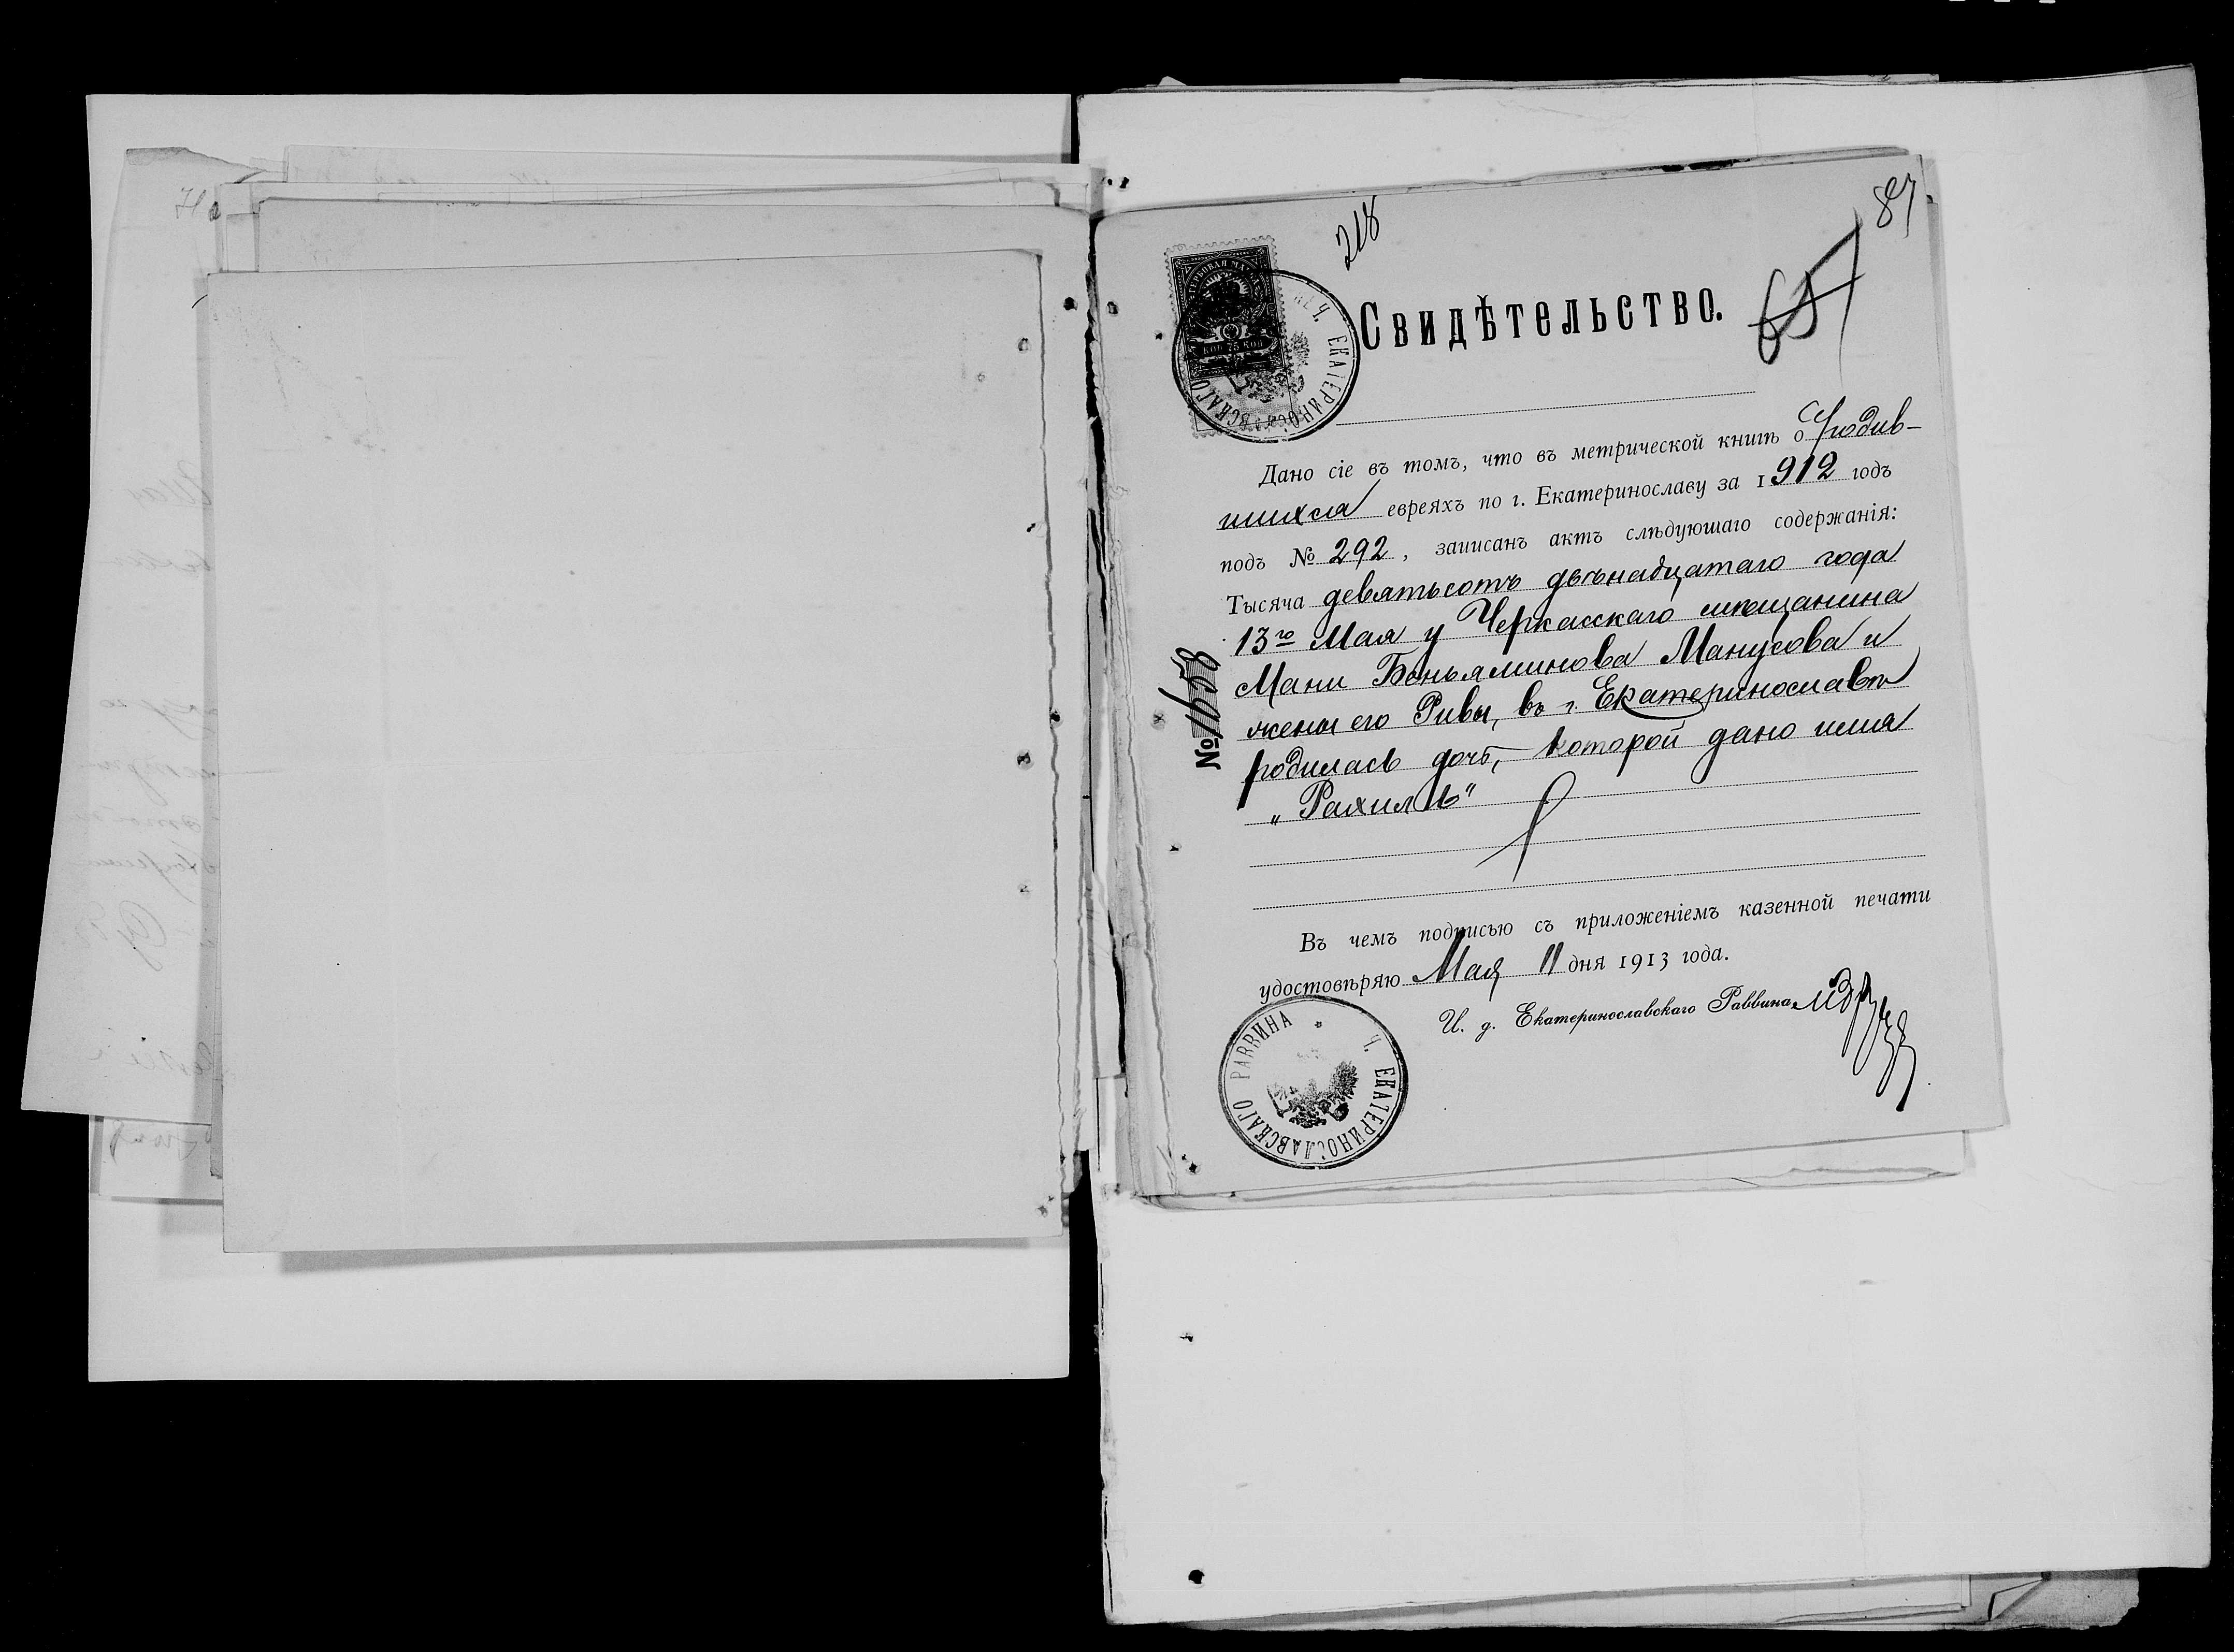 218
87
657
ГЕРБОВАЯ МАРКА
КОП 75 КОП
ПЕЧ. ЕКАТЕРИНОСЛАВСКАГО
Свидѣтельство.
Дано сіе въ томъ, что въ метрической книгѣ о родив-
шихся евреяхъ по г. Екатеринославу за 1912 годъ
подъ № 292, записанъ актъ слѣдующаго содержанія:
Тысяча девятьсотъ двѣнадцатаго года
13го Мая у Черкасскаго мѣщанина
Мани Беньяминова Манусова и
жены его Ривы, въ г. Екатеринославѣ
родилась дочь, которой дано имя
„Рахиль"
№ 1658
Въ чемъ подписью съ приложеніемъ казенной печати
удостовѣряю Мая 11 дня 1913 года.
И. д. Екатеринославскаго Раввина
Ч. ЕКАТЕРИНОСЛАВСКАГО РАВВИНА